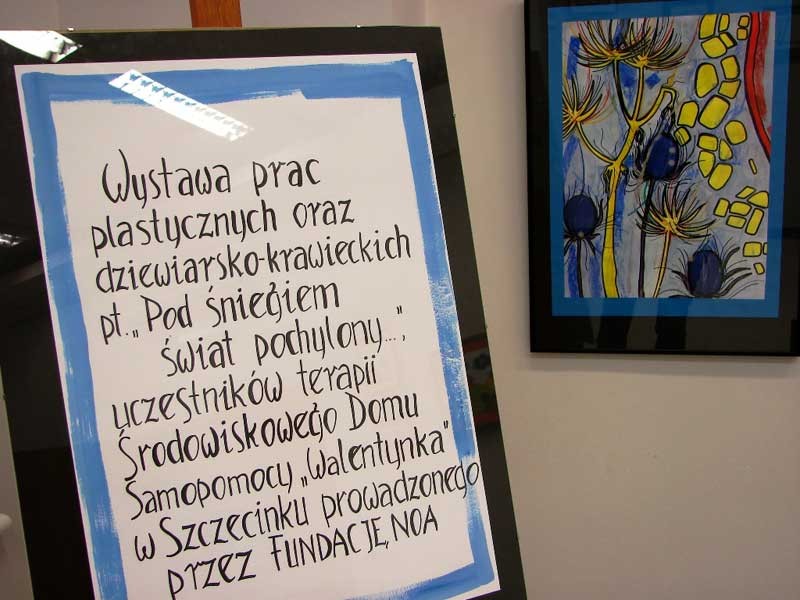 Wystawa prac
plastycznych oraz
dziewiarsko-krawieckich
pt. „Pod śniegiem
świat pochylony...",
uczestników terapii
Środowiskowego Domu
Samopomocy „Walentynka"
w Szczecinku prowadzonego
przez FUNDACJĘ NOA